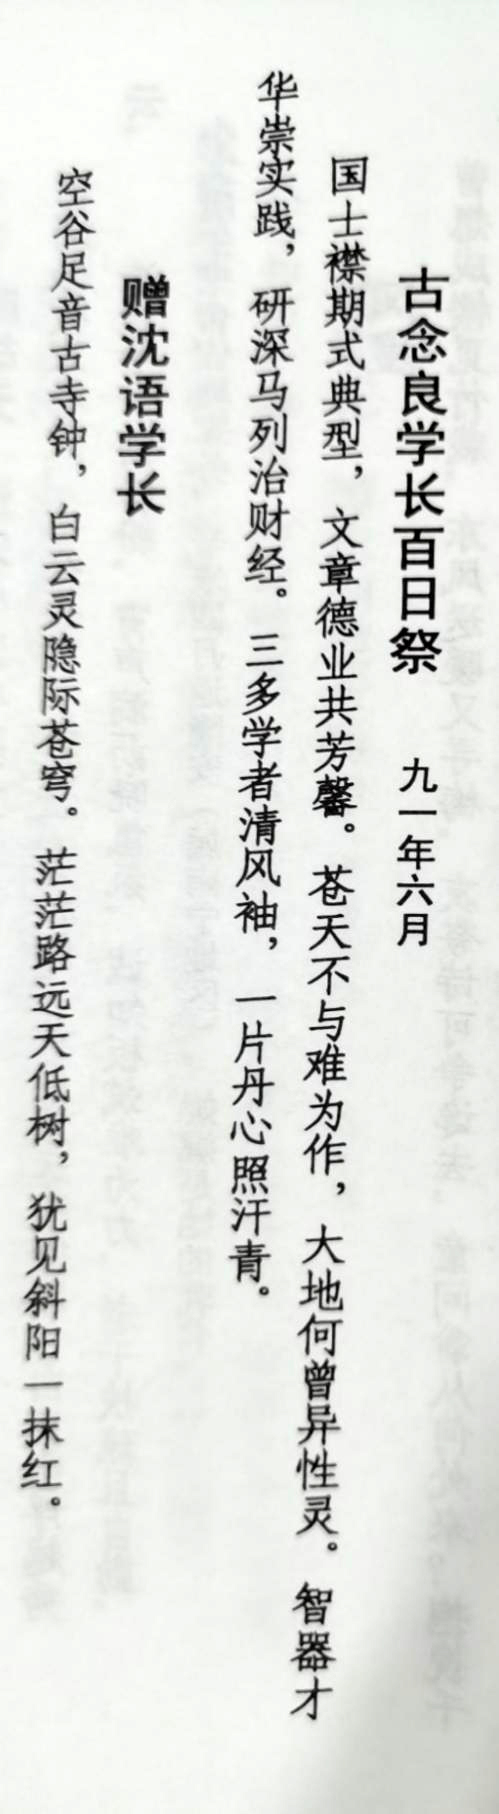 古念良学长百日祭 九一年六月
国士襟期式典型，文章德业共芳馨。苍天不与难为作，大地何曾异性灵。智器才
华崇实践，研深马列治财经。三多学者清风袖，一片丹心照汗青。
赠沈语学长
空谷足音古寺钟，白云灵隐际苍穹。茫茫路远天低树，犹见斜阳一抹红。